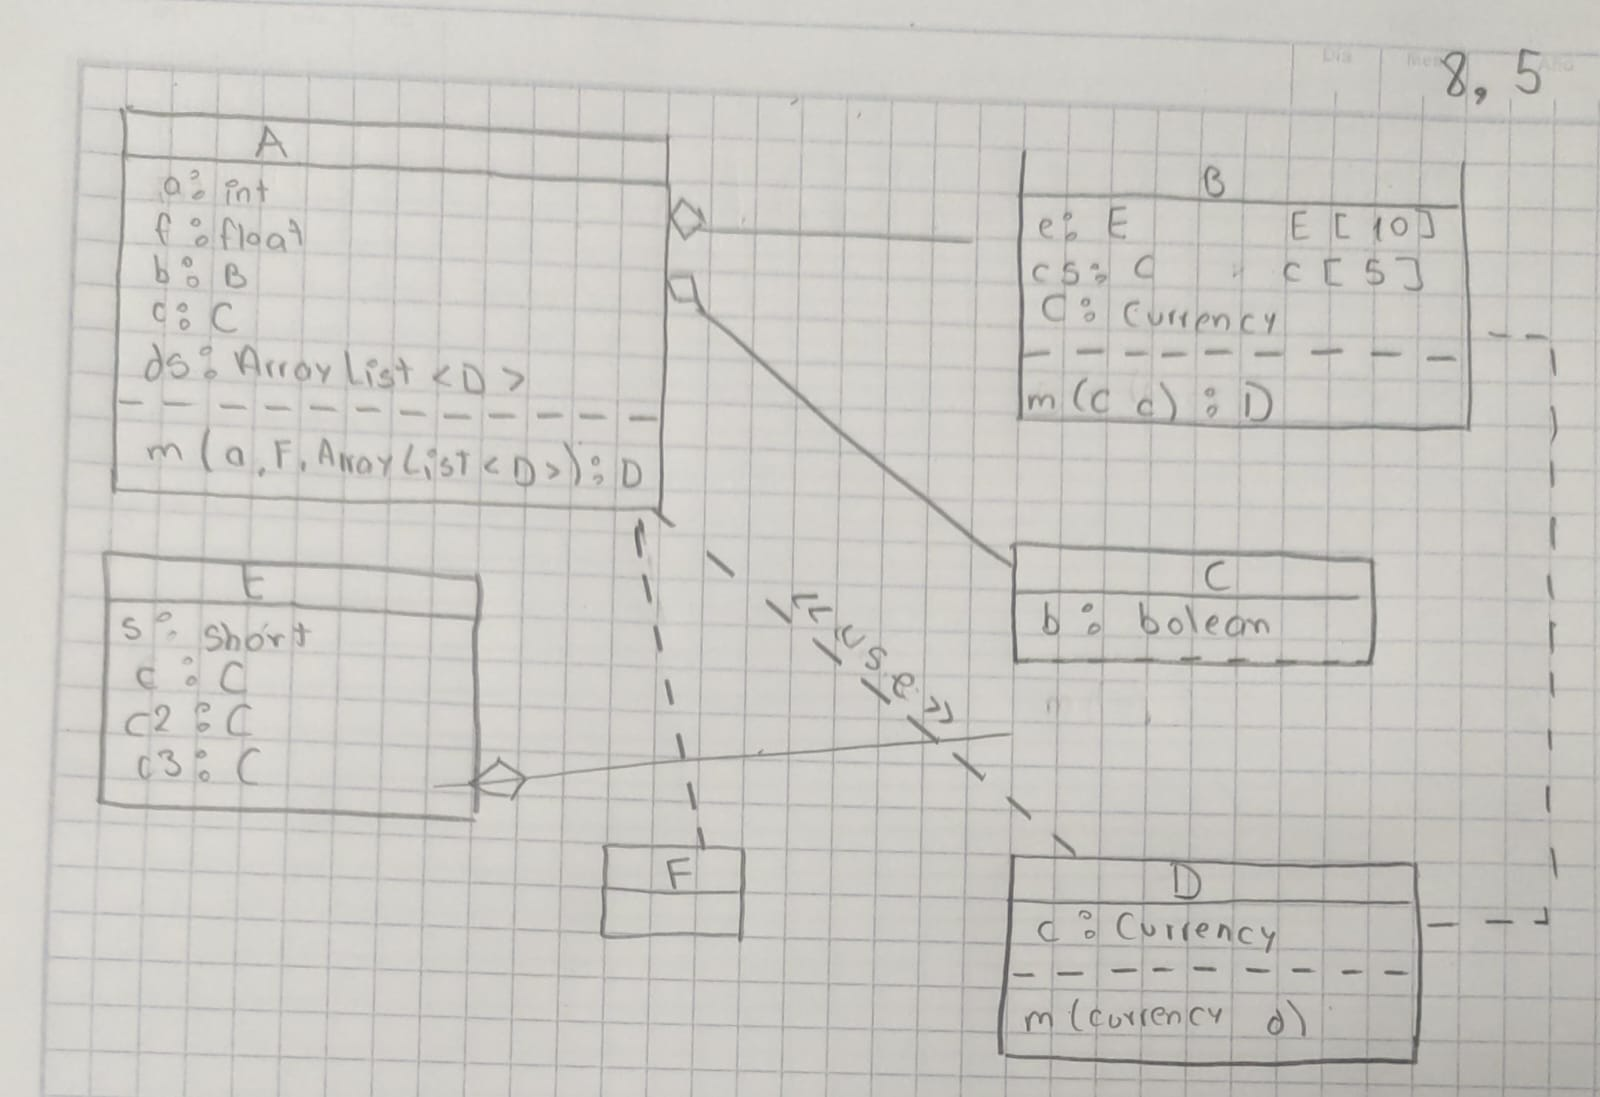 Dia Mes Año
8, 5
A
a: int
f: float
b: B
c: C
ds: ArrayList <D>
m (a, F, ArrayList <D>): D
B
e: E E [10]
cs: C C [5]
C: Currency
m (c d): D
<<use>>
C
b: bolean
E
s: short
c: C
c2: C
c3: C
F
D
c: Currency
m (currency d)